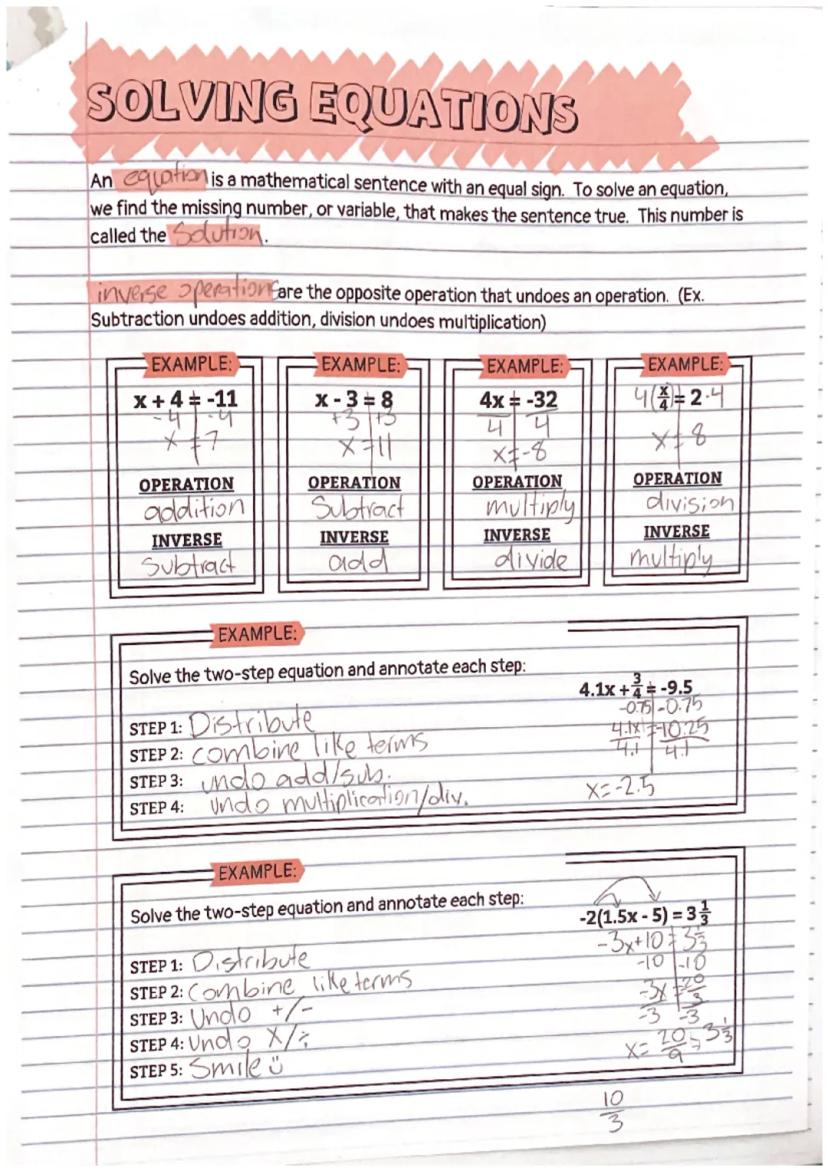 SOLVING EQUATIONS
An equation is a mathematical sentence with an equal sign. To solve an equation,
we find the missing number, or variable, that makes the sentence true. This number is
called the Solution.
inverse operations are the opposite operation that undoes an operation. (Ex.
Subtraction undoes addition, division undoes multiplication)
EXAMPLE:
x + 4 = -11
-4 -4
x = 7
OPERATION
addition
INVERSE
Subtract
EXAMPLE:
x - 3 = 8
+3 +3
x = 11
OPERATION
Subtract
INVERSE
add
EXAMPLE:
4x = -32
4 4
x = -8
OPERATION
multiply
INVERSE
divide
EXAMPLE:
4(x/4) = 2·4
x = 8
OPERATION
division
INVERSE
multiply
EXAMPLE:
Solve the two-step equation and annotate each step:
STEP 1: Distribute
STEP 2: combine like terms
STEP 3: undo add/sub.
STEP 4: undo multiplication/div.
4.1x + 3/4 = -9.5
-0.75 -0.75
4.1x = -10.25
4.1 4.1
x = -2.5
EXAMPLE:
Solve the two-step equation and annotate each step:
STEP 1: Distribute
STEP 2: Combine like terms
STEP 3: Undo +/-
STEP 4: Undo X/÷
STEP 5: Smile ☺
-2(1.5x - 5) = 3 1/3
-3x+10 = 3 1/3
-10 -10
-3x = 20/3
-3 -3
x = 20/9 = 3 1/3
10/3